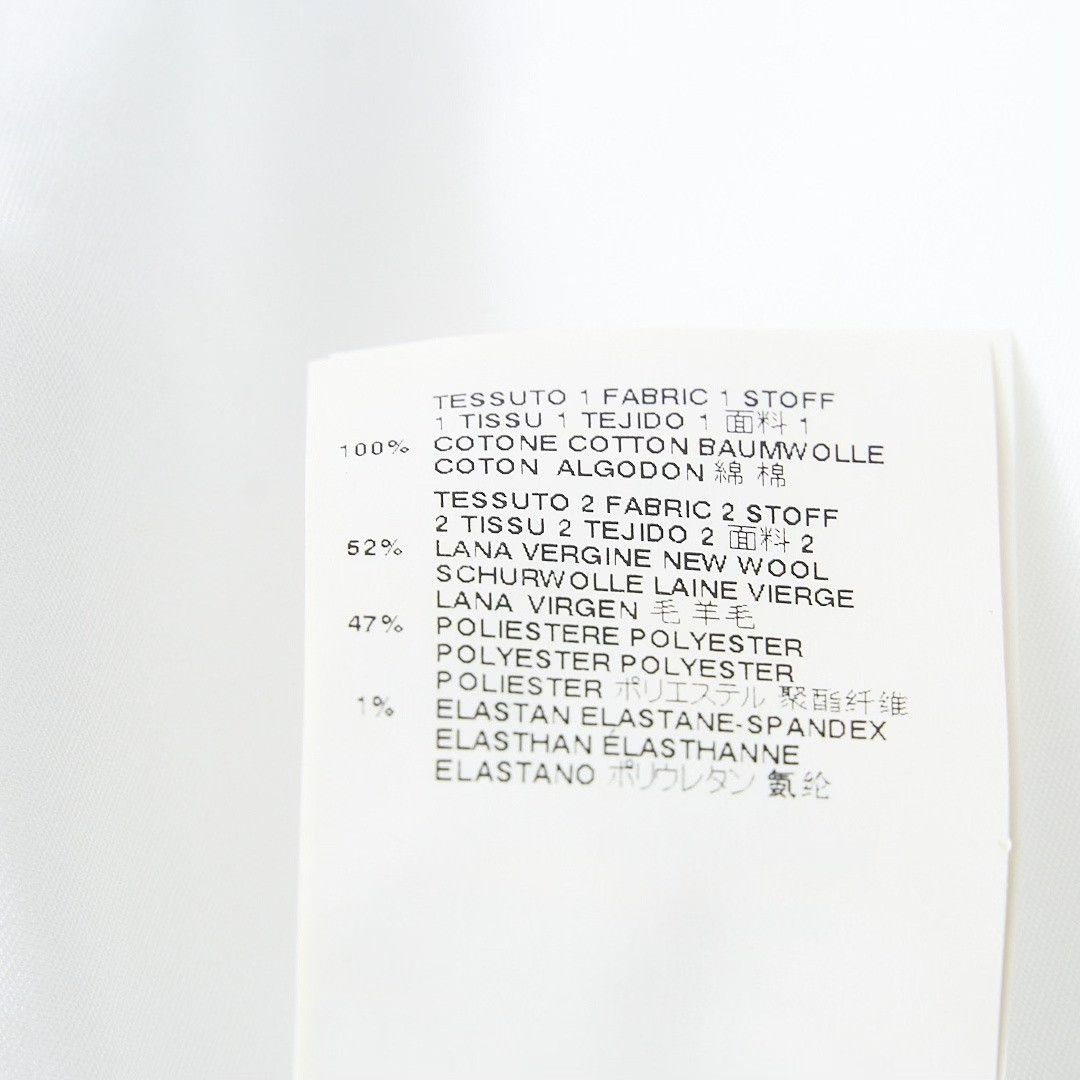 TESSUTO 1 FABRIC 1 STOFF
1 TISSU 1 TEJIDO 1 面料 1
100% COTONE COTTON BAUMWOLLE
COTON ALGODON 綿 棉
TESSUTO 2 FABRIC 2 STOFF
2 TISSU 2 TEJIDO 2 面料 2
52% LANA VERGINE NEW WOOL
SCHURWOLLE LAINE VIERGE
LANA VIRGEN 毛 羊毛
47% POLIESTERE POLYESTER
POLYESTER POLYESTER
POLIESTER ポリエステル 聚酯纤维
1% ELASTAN ELASTANE-SPANDEX
ELASTHAN ÉLASTHANNE
ELASTANO ポリウレタン 氨纶